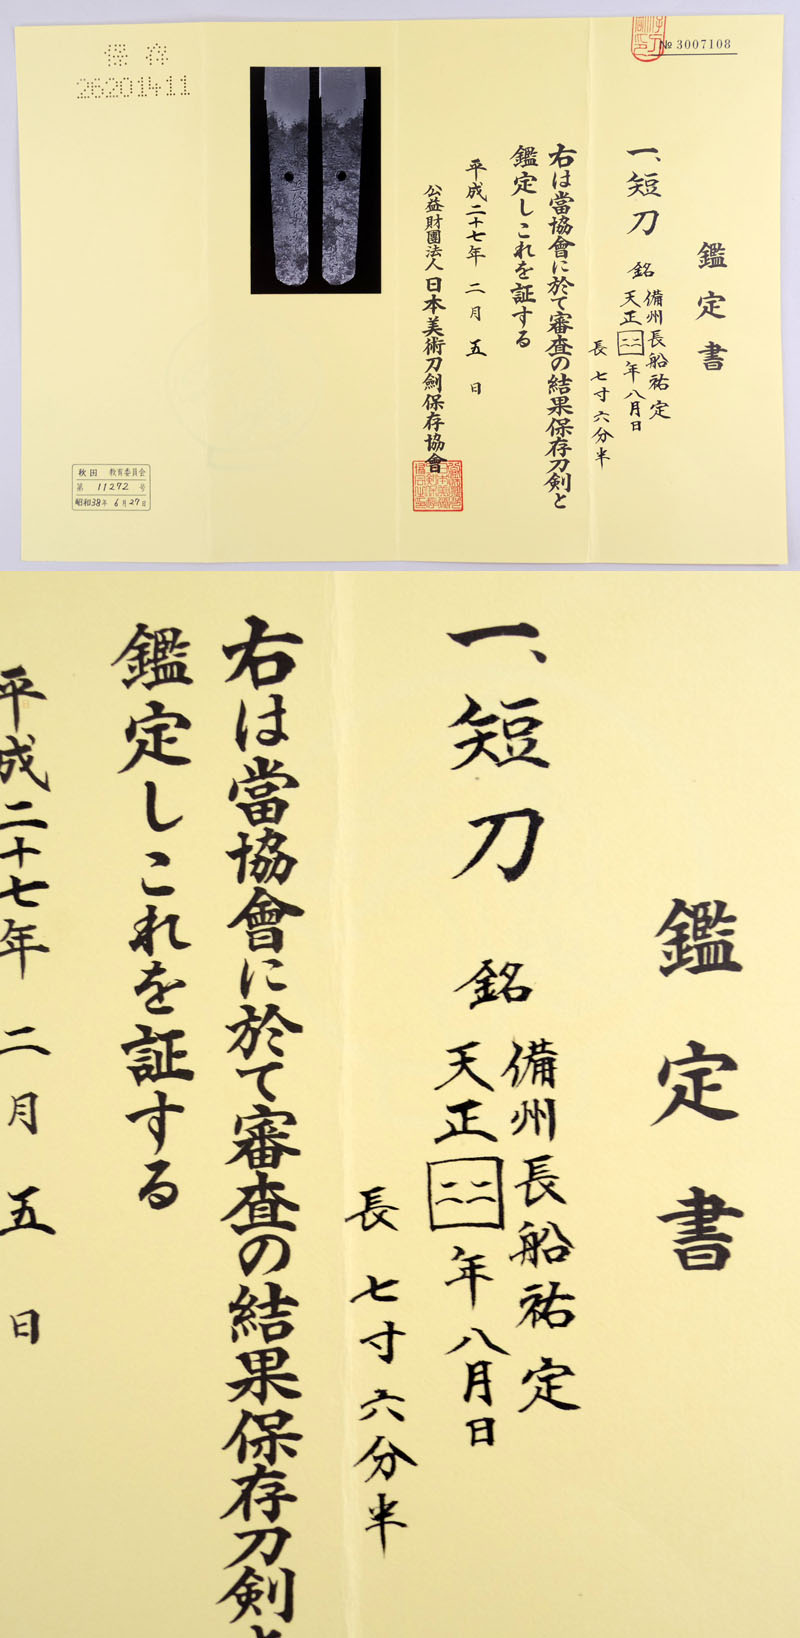 № 3007108
鑑定書
一、短刀
銘 備州長船祐定
天正二二年八月日
長 七寸六分半
右は當協會に於て審査の結果保存刀剣と
鑑定しこれを証する
平成二十七年 二月 五 日
公益財團法人 日本美術刀劍保存協會
保存
26201411
秋田 教育委員会
第 11272 号
昭和38年 6月27日
鑑定書
一、短刀
銘 備州長船祐定
天正二二年八月日
長 七寸六分半
右は當協會に於て審査の結果保存刀剣と
鑑定しこれを証する
平成二十七年 二月 五 日